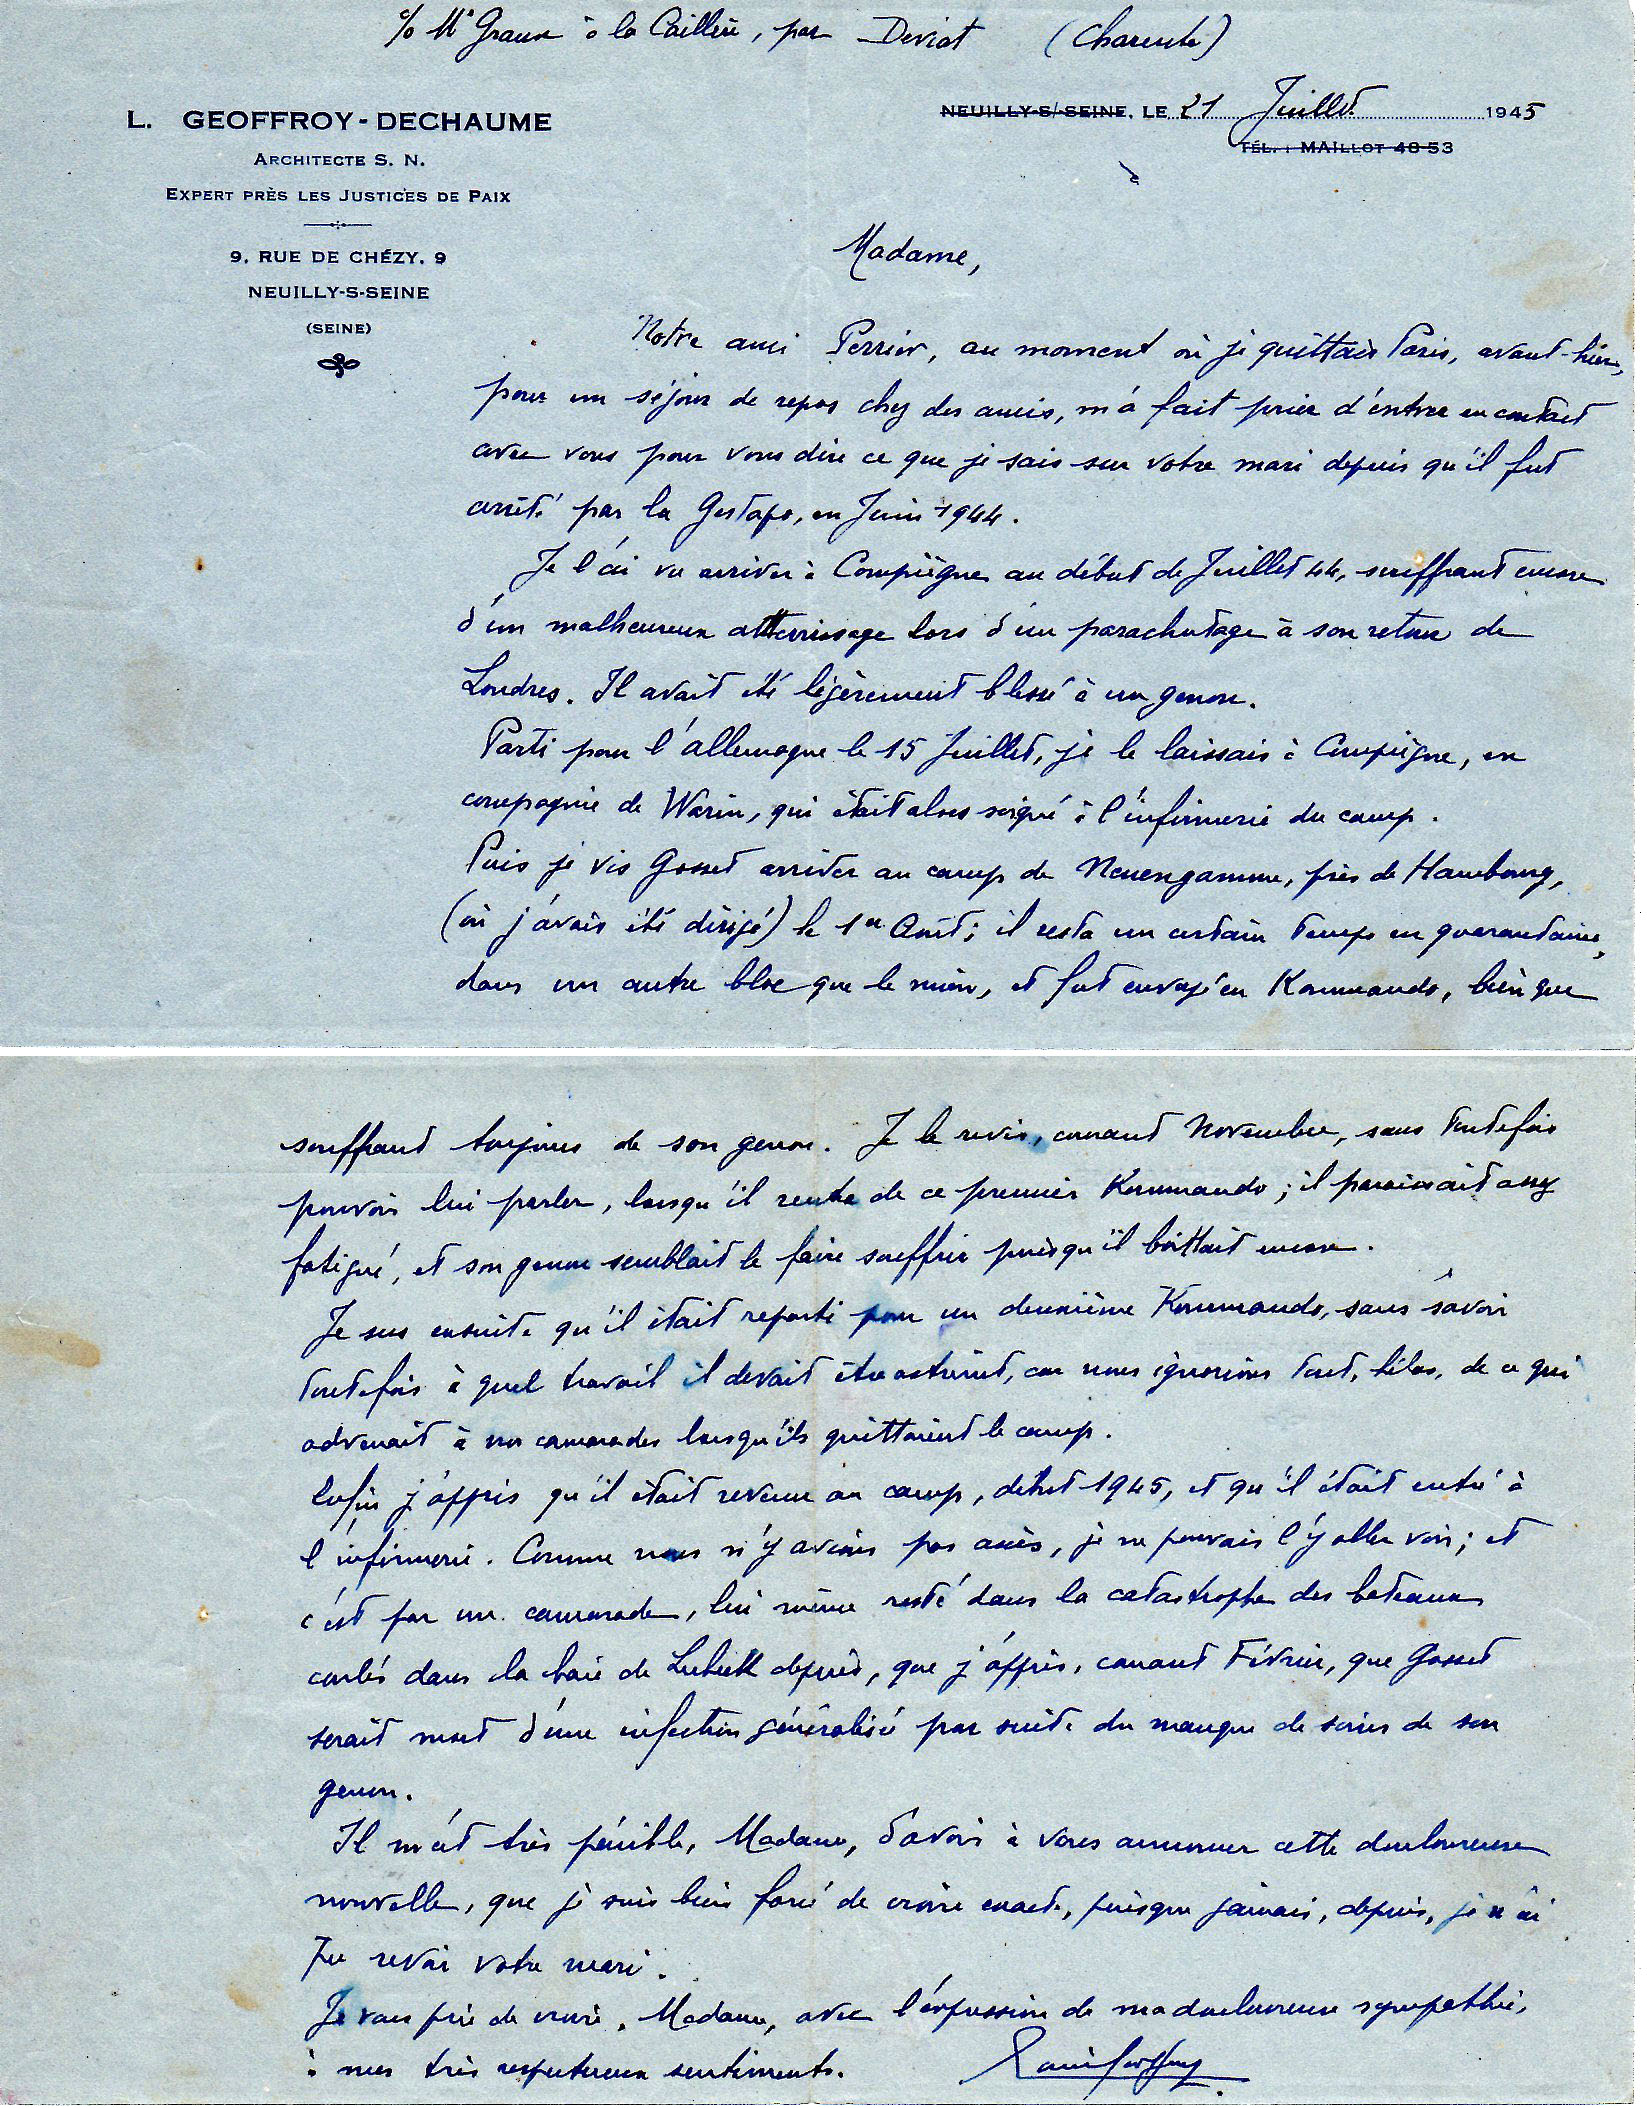 c/o Mr Graux à la Caillère, par Deviat (Charente)
L. GEOFFROY-DECHAUME
ARCHITECTE S. N.
EXPERT PRÈS LES JUSTICES DE PAIX
9, RUE DE CHÉZY, 9
NEUILLY-S-SEINE
(SEINE)
NEUILLY-S/-SEINE, LE 21 Juillet 1945
TÉL. : MAILLOT 48-53
Madame,
Notre ami Perrier, au moment où je quittais Paris, avant-hier,
pour un séjour de repos chez des amis, m'a fait prier d'entrer en contact
avec vous pour vous dire ce que je sais sur votre mari depuis qu'il fut
arrêté par la Gestapo, en Juin 1944.
Je l'ai vu arriver à Compiègne au début de Juillet 44, souffrant encore
d'un malheureux atterrissage lors d'un parachutage à son retour de
Londres. Il avait été légèrement blessé à un genou.
Parti pour l'allemagne le 15 Juillet, je le laissais à Compiègne, en
compagnie de Warin, qui était alors soigné à l'infirmerie du camp.
Puis je vis Gosset arriver au camp de Neuengamme, près de Hambourg,
(où j'avais été dirigé) le 1er Août; il resta un certain temps en quarantaine,
dans un autre bloc que le mien, et fut envoyé en Kommando, bien que
souffrant toujours de son genou. Je le revis, courant Novembre, sans toutefois
pouvoir lui parler, lorsqu'il rentra de ce premier Kommando; il paraissait assez
fatigué, et son genou semblait le faire souffrir puisqu'il boittait encore.
Je sus ensuite qu'il était reparti pour un deuxième Kommando, sans savoir
toutefois à quel travail il devait être astreint, car nous ignorions tout, hélas, de ce qui
advenait à nos camarades lorsqu'ils quittaient le camp.
Enfin j'appris qu'il était revenu au camp, début 1945, et qu'il était entré à
l'infirmerie. Comme nous n'y avions pas accès, je ne pouvais l'y aller voir; et
c'est par un camarade, lui même resté dans la catastrophe des bateaux
coulés dans la baie de Lubeck depuis, que j'appris, courant Février, que Gosset
serait mort d'une infection généralisée par suite du manque de soins de son
genou.
Il m'est très pénible, Madame, d'avoir à vous annoncer cette douloureuse
nouvelle, que je suis bien forcé de croire exacte, puisque jamais, depuis, je n'ai
pu revoir votre mari.
Je vous prie de croire, Madame, avec l'expression de ma douloureuse sympathie,
à mes très respectueux sentiments.
Louis Geoffroy